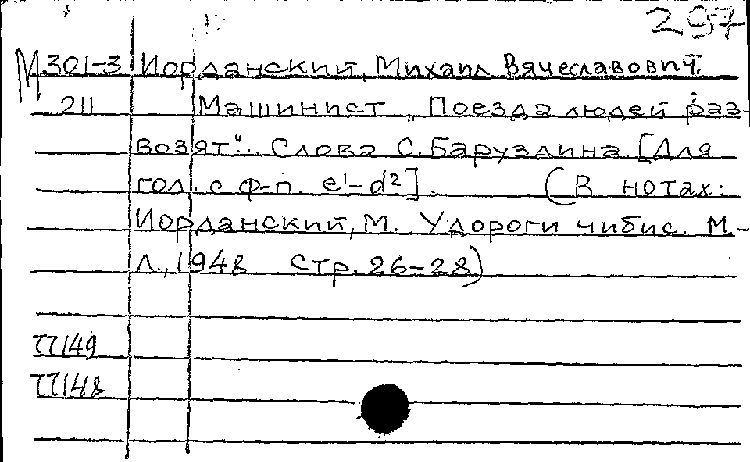 297
М301-3 Иорданский, Михаил Вячеславович.
211 Машинист „Поезда людей раз-
возят". Слова С. Баруздина [Для
гол. с ф-п. e¹-d²]. (В нотах:
Иорданский, М. У дороги чибис. М.-
Л., 1948 Стр. 26-28)
77149
77148